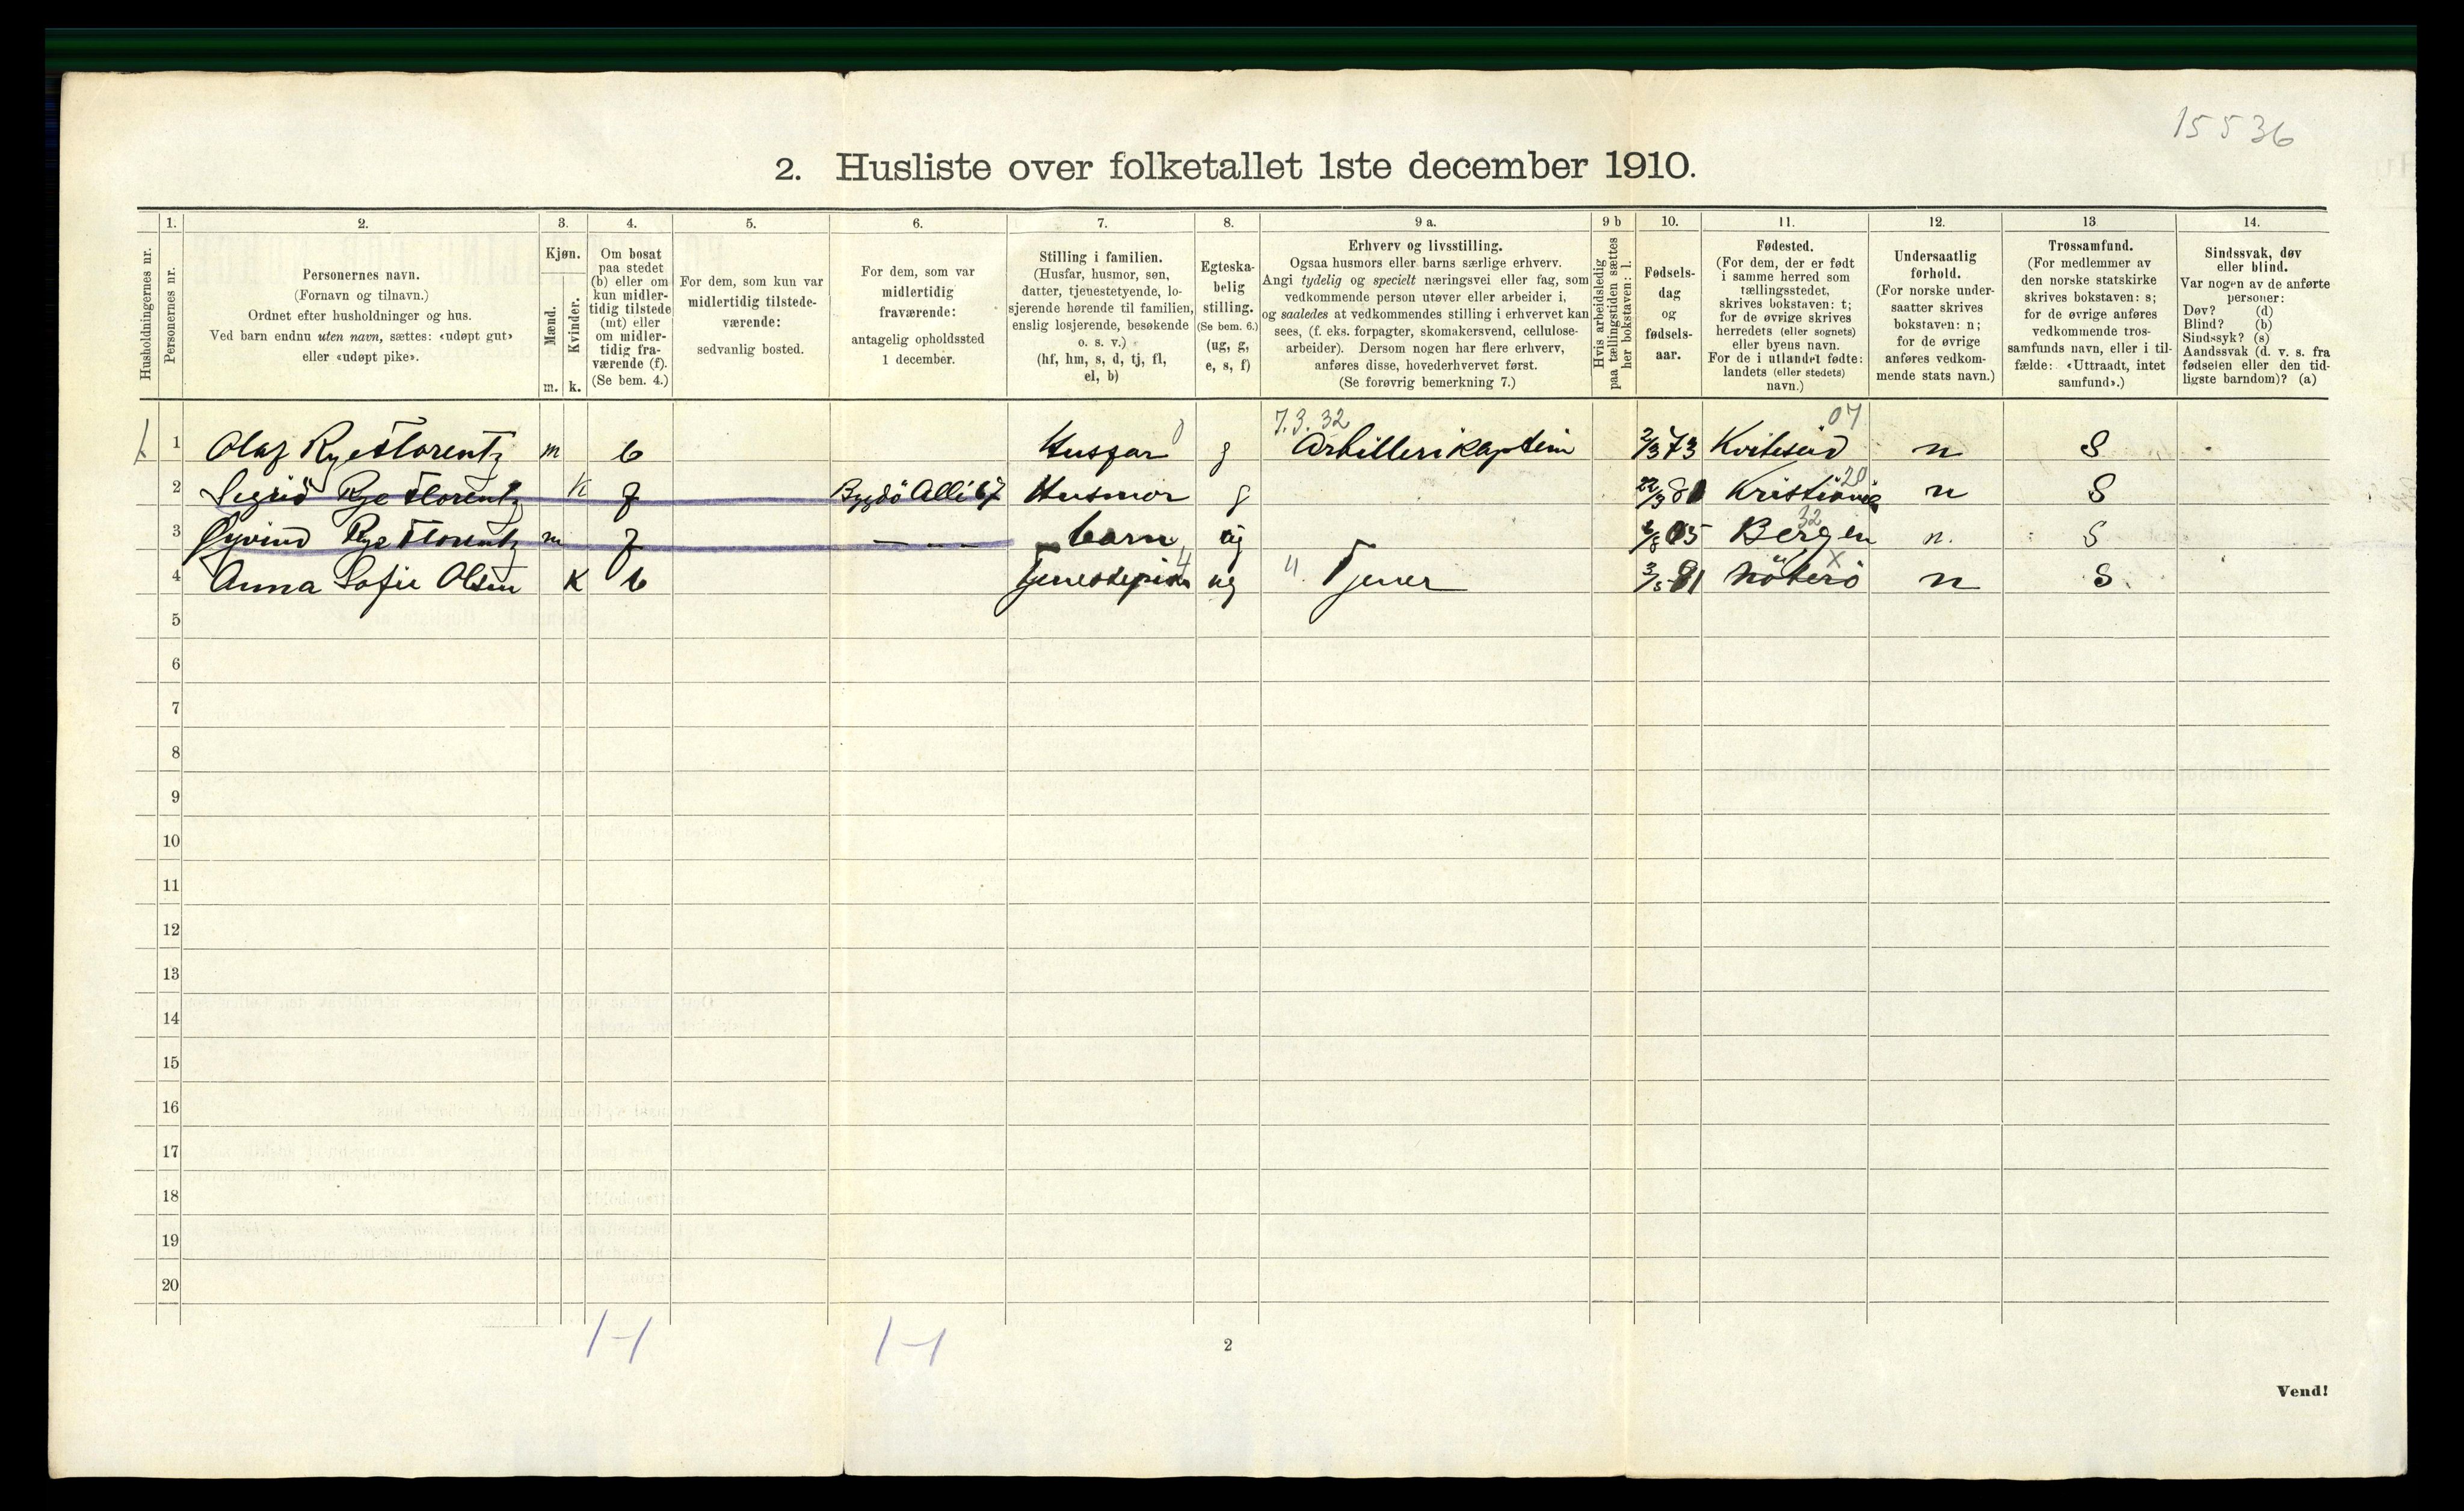 15536
2. Husliste over folketallet 1ste december 1910.
Husholdningernes nr.
1.
Personernes nr.
2.
Personernes navn.
(Fornavn og tilnavn.)
Ordnet efter husholdninger og hus.
Ved barn endnu uten navn, sættes: «udøpt gut»
eller «udøpt pike».
3.
Kjøn.
Mænd.
Kvinder.
m. k.
4.
Om bosat
paa stedet
(b) eller om
kun midler-
tidig tilstede
(mt) eller
om midler-
tidig fra-
værende (f).
(Se bem. 4.)
5.
For dem, som kun var
midlertidig tilstede-
værende:
sedvanlig bosted.
6.
For dem, som var
midlertidig
fraværende:
antagelig opholdssted
1 december.
7.
Stilling i familien.
(Husfar, husmor, søn,
datter, tjenestetyende, lo-
sjerende hørende til familien,
enslig losjerende, besøkende
o. s. v.)
(hf, hm, s, d, tj, fl,
el, b)
8.
Egteska-
belig
stilling.
(Se bem. 6.)
(ug, g,
e, s, f)
9 a.
Erhverv og livsstilling.
Ogsaa husmors eller barns særlige erhverv.
Angi tydelig og specielt næringsvei eller fag, som
vedkommende person utøver eller arbeider i,
og saaledes at vedkommendes stilling i erhvervet kan
sees, (f. eks. forpagter, skomakersvend, cellulose-
arbeider). Dersom nogen har flere erhverv,
anføres disse, hovederhvervet først.
(Se forøvrig bemerkning 7.)
9 b
Hvis arbeidsledig
paa tællingstiden sættes
her bokstaven: l.
10.
Fødsels-
dag
og
fødsels-
aar.
11.
Fødested.
(For dem, der er født
i samme herred som
tællingsstedet,
skrives bokstaven: t;
for de øvrige skrives
herredets (eller sognets)
eller byens navn.
For de i utlandet fødte:
landets (eller stedets)
navn.)
12.
Undersaatlig
forhold.
(For norske under-
saatter skrives
bokstaven: n;
for de øvrige
anføres vedkom-
mende stats navn.)
13
Trossamfund.
(For medlemmer av
den norske statskirke
skrives bokstaven: s;
for de øvrige anføres
vedkommende tros-
samfunds navn, eller i til-
fælde: «Uttraadt, intet
samfund».)
14.
Sindssvak, døv
eller blind.
Var nogen av de anførte
personer:
Døv? (d)
Blind? (b)
Sindssyk? (s)
Aandssvak (d. v. s. fra
fødselen eller den tid-
ligste barndom)? (a)
7.3.32 07
1 Olaf Rye Florentz m b Husfar 0 g Artillerikaptein 2/3 73 Kviteseid n S
20
2 Sigrid Rye Florentz K f Bygdö Allé 67 Husmor g 22/3 81 Kristiania n S
32
3 Øyvind Rye Florentz m f — — — barn ug 2/8 05 Bergen n. S
4 Anna Sofie Olsen K b Tjenestepike 4 ug " Tjener 3/5 81 Nöterö x n S.
5
6
7
8
9
10
11
12
13
14
15
16
17
18
19
20
1-1 1-1
2
Vend!